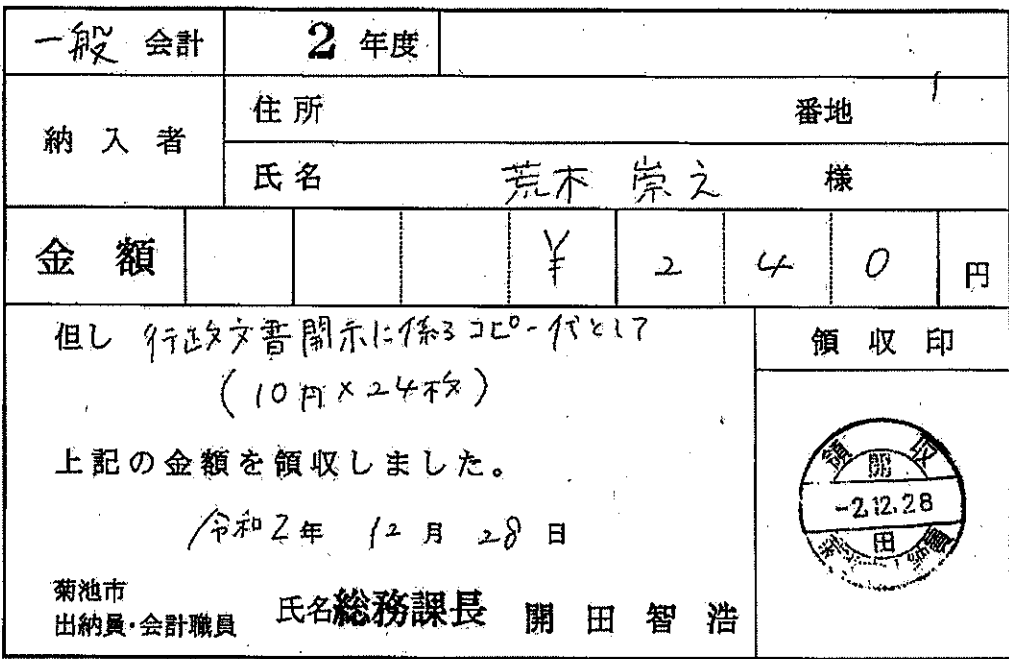 一般 会計 2 年度
納入者 住所 番地
氏名 荒木 崇之 様
金額 ¥ 2 4 0 円
但し 行政文書開示に係るコピー代として
(10円×24枚)
領収印
上記の金額を領収しました。
領収
開
-2.12.28
田
納員
令和2年 12月 28日
菊池市
出納員・会計職員 氏名 総務課長 開田智浩